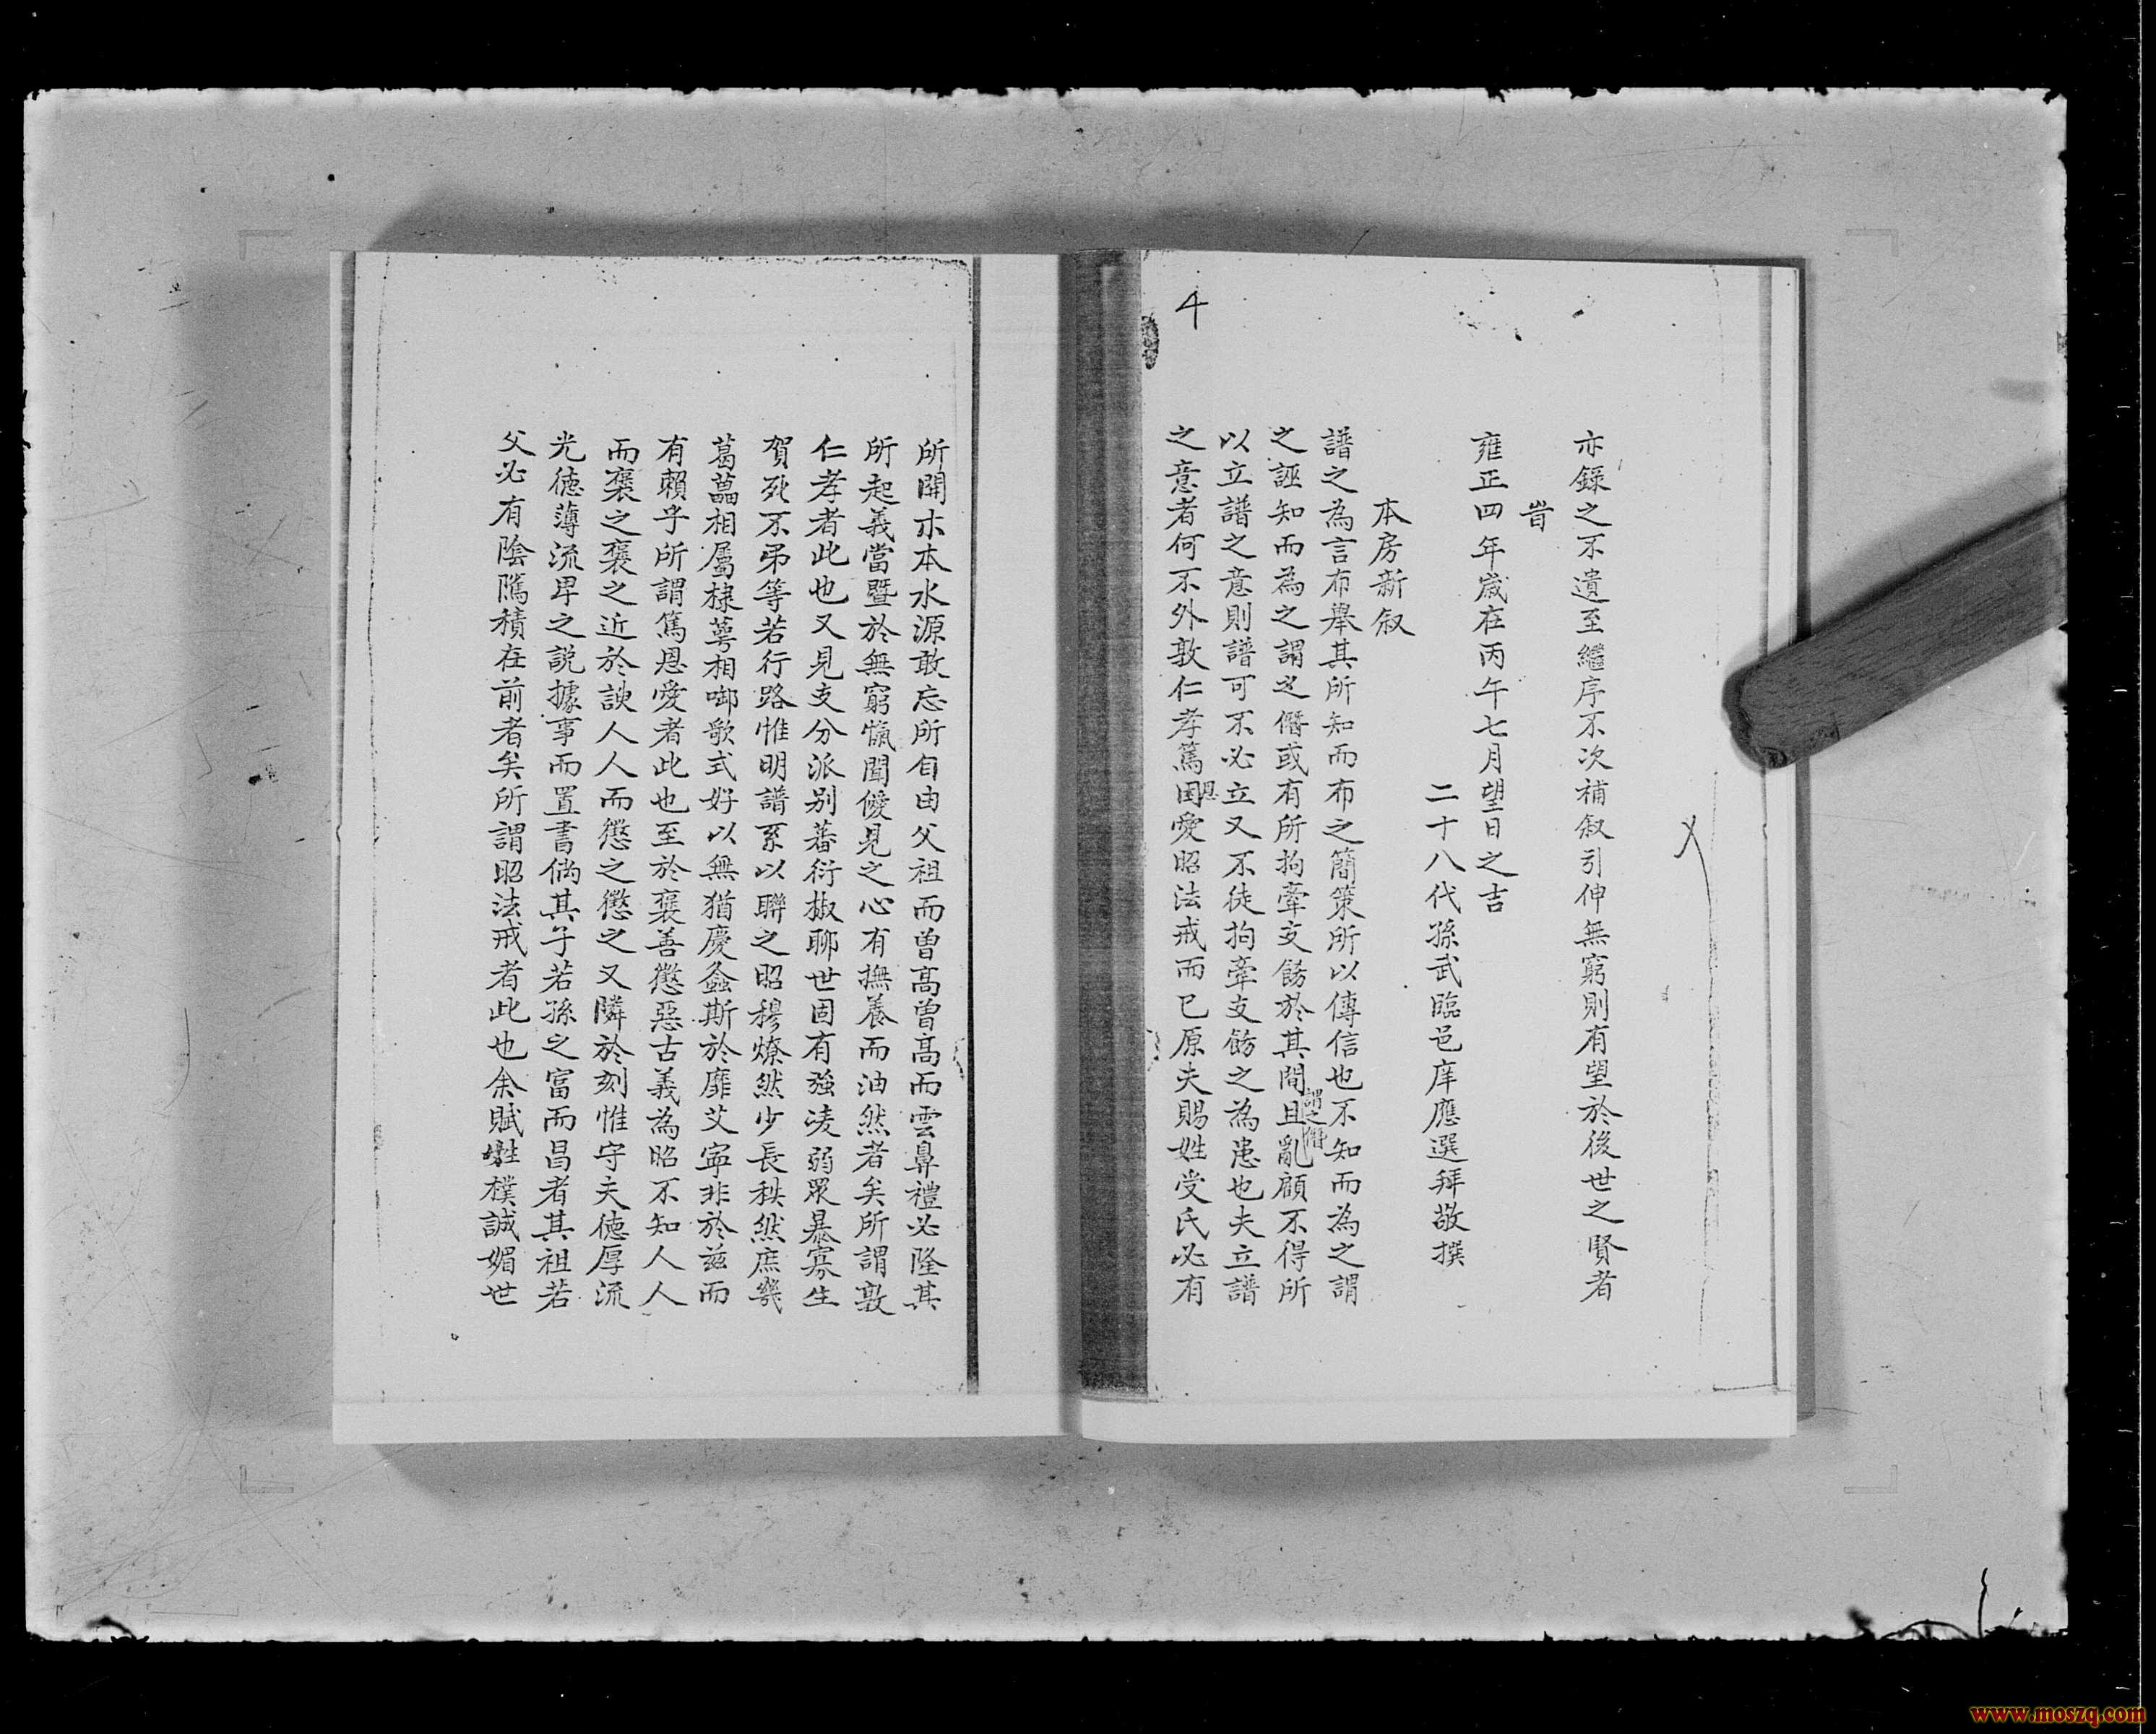 亦錄之不遺至繼序不次補叙引伸無窮則有望於後世之賢者
旹
雍正四年歲在丙午七月望日之吉
二十八代孫武臨邑庠應選拜敬撰
本房新叙
譜之為言布舉其所知而布之簡策所以傳信也不知而為之謂
之誣知而為之謂之僭或有所拘牽支餙於其間謂之僭且亂顧不得所
以立譜之意則譜可不必立又不徒拘牽支餙之為患也夫立譜
之意者何不外敦仁孝篤恩愛昭法戒而已原夫賜姓受氏必有
4
所開木本水源敢忘所自由父祖而曾高曾高而雲鼻禮必隆其
所起義當暨於無窮愾聞僾見之心有撫養而油然者矣所謂敦
仁孝者此也又見支分派别蕃衍椒聊世固有強凌弱眾暴寡生
賀死不弔等若行路惟明譜系以聯之昭穆燎然少長秩然庶幾
葛藟相屬棣萼相啣歌式好以無猶慶螽斯於靡艾寧非於兹而
有賴乎所謂篤恩愛者此也至於襃善懲惡古義為昭不知人人
而襃之襃之近於諛人人而懲之懲之又隣於刻惟守夫德厚流
光德薄流卑之説據事而置書倘其子若孫之富而昌者其祖若
父必有陰隲積在前者矣所謂昭法戒者此也余賦性樸誠媚世
www.moszq.com